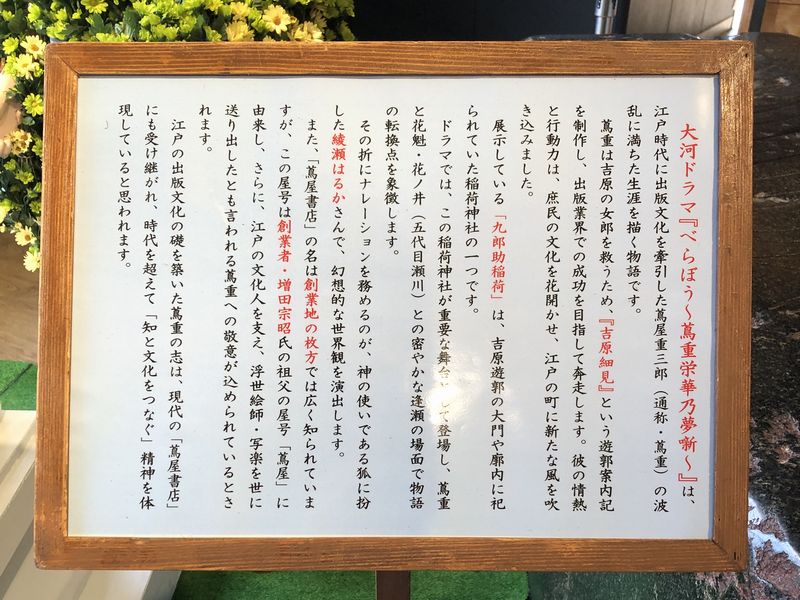 大河ドラマ『べらぼう～蔦重栄華乃夢噺～』は、
江戸時代に出版文化を牽引した蔦屋重三郎（通称・蔦重）の波
乱に満ちた生涯を描く物語です。
蔦重は吉原の女郎を救うため、『吉原細見』という遊郭案内記
を制作し、出版業界での成功を目指して奔走します。彼の情熱
と行動力は、庶民の文化を花開かせ、江戸の町に新たな風を吹
き込みました。
展示している「九郎助稲荷」は、吉原遊郭の大門や廓内に祀
られていた稲荷神社の一つです。
ドラマでは、この稲荷神社が重要な舞台として登場し、蔦重
と花魁・花ノ井（五代目瀬川）との密やかな逢瀬の場面で物語
の転換点を象徴します。
その折にナレーションを務めるのが、神の使いである狐に扮
した綾瀬はるかさんで、幻想的な世界観を演出します。
また、「蔦屋書店」の名は創業地の枚方では広く知られていま
すが、この屋号は創業者・増田宗昭氏の祖父の屋号「蔦屋」に
由来し、さらに、江戸の文化人を支え、浮世絵師・写楽を世に
送り出したとも言われる蔦重への敬意が込められているとさ
れます。
江戸の出版文化の礎を築いた蔦重の志は、現代の「蔦屋書店」
にも受け継がれ、時代を超えて「知と文化をつなぐ」精神を体
現していると思われます。